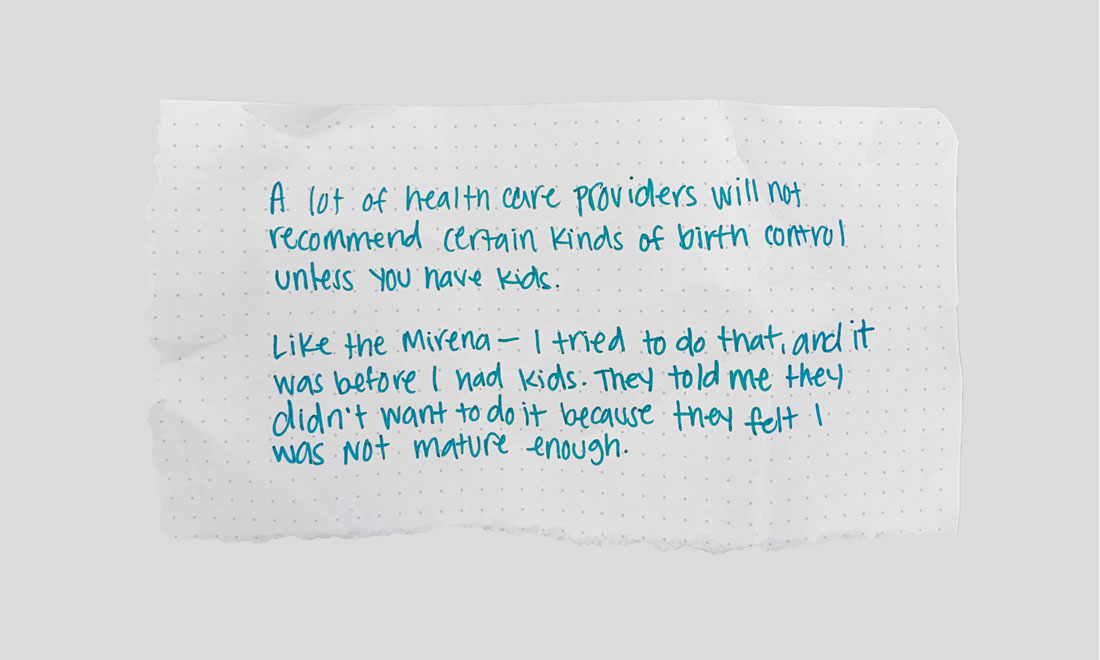 A lot of health care providers will not
recommend certain kinds of birth control
unless you have kids.
Like the Mirena — I tried to do that, and it
was before I had kids. They told me they
didn't want to do it because they felt I
was not mature enough.